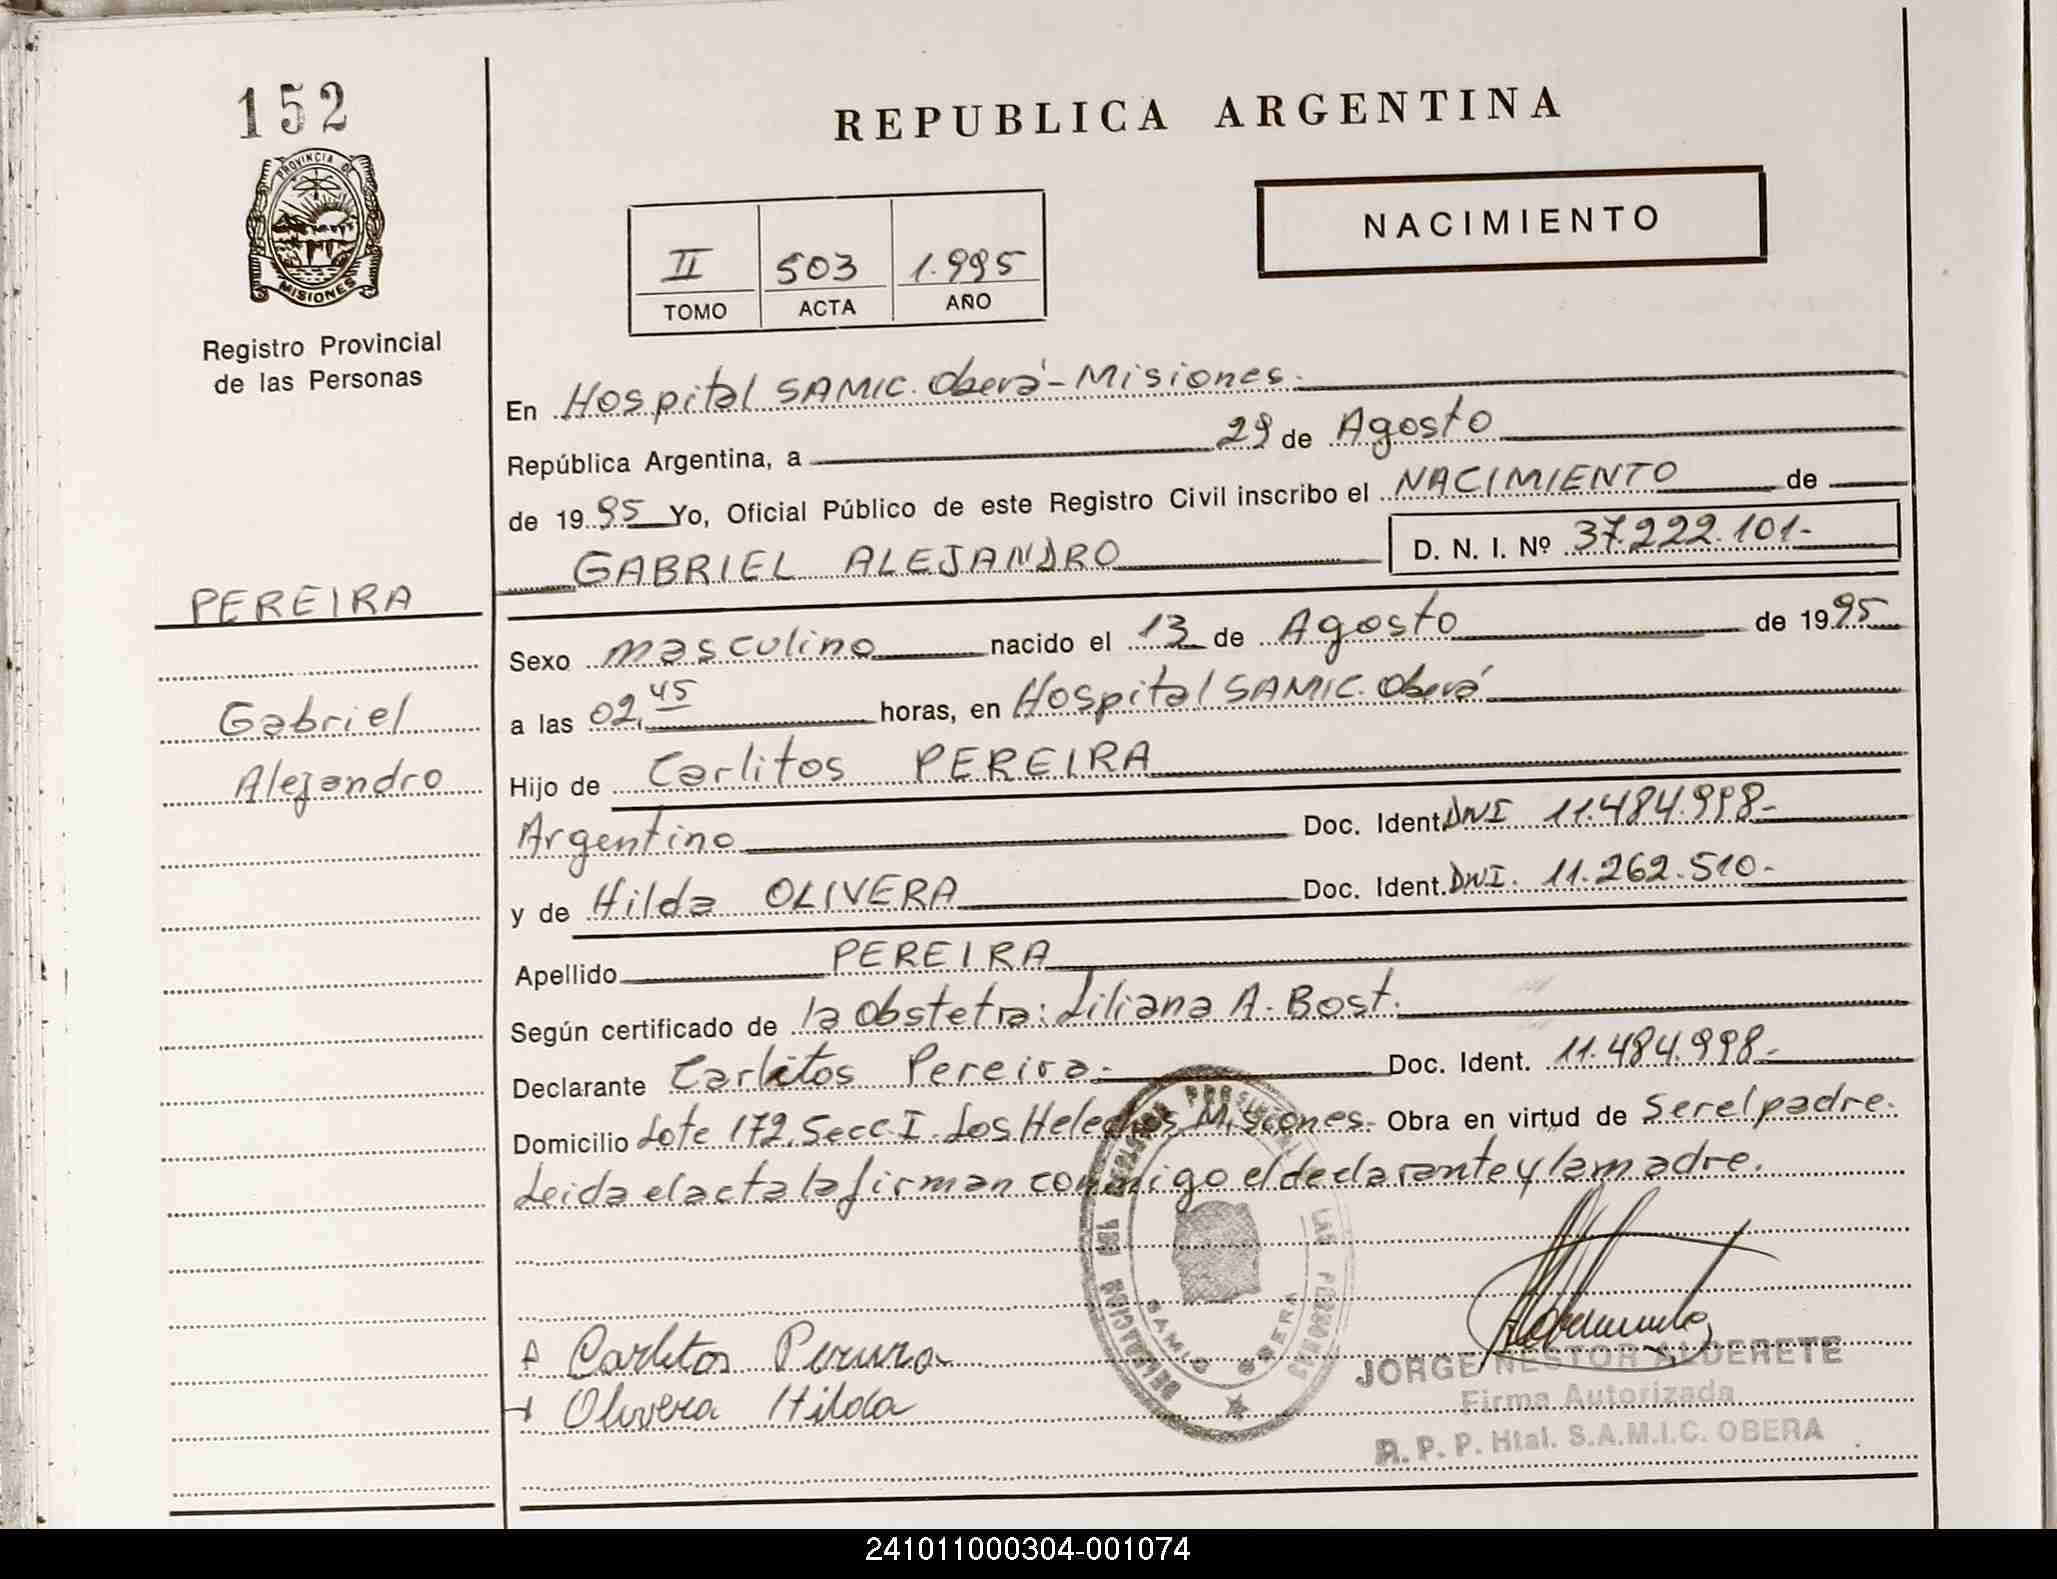 152
PROVINCIA DE
MISIONES
Registro Provincial
de las Personas
PEREIRA
Gabriel
Alejandro
REPUBLICA ARGENTINA
II 503 1.995
TOMO ACTA AÑO
NACIMIENTO
En Hospital SAMIC. Oberá - Misiones.
República Argentina, a 29 de Agosto
de 1995 Yo, Oficial Público de este Registro Civil inscribo el NACIMIENTO de
GABRIEL ALEJANDRO D. N. I. Nº 37.222.101-
Sexo masculino nacido el 13 de Agosto de 1995
a las 02,45 horas, en Hospital SAMIC. Oberá
Hijo de Carlitos PEREIRA
Argentino Doc. Ident. DNI 11.484.998-
y de Hilda OLIVERA Doc. Ident. DNI. 11.262.510-
Apellido PEREIRA
Según certificado de la Obstetra: Liliana A. Bost.
Declarante Carlitos Pereira - Doc. Ident. 11.484.998-
Domicilio Lote 172. Secc. I. Los Helechos Misiones - Obra en virtud de ser el padre.
Leida el acta la firman conmigo el declarante y la madre.
DELEGACION
LAS PERSONAS
SAMIC OBERA
Carlitos Pereira
Olivera Hilda
JORGE NESTOR ALDERETE
Firma Autorizada
R. P. P. Htal. S.A.M.I.C. OBERA
241011000304-001074